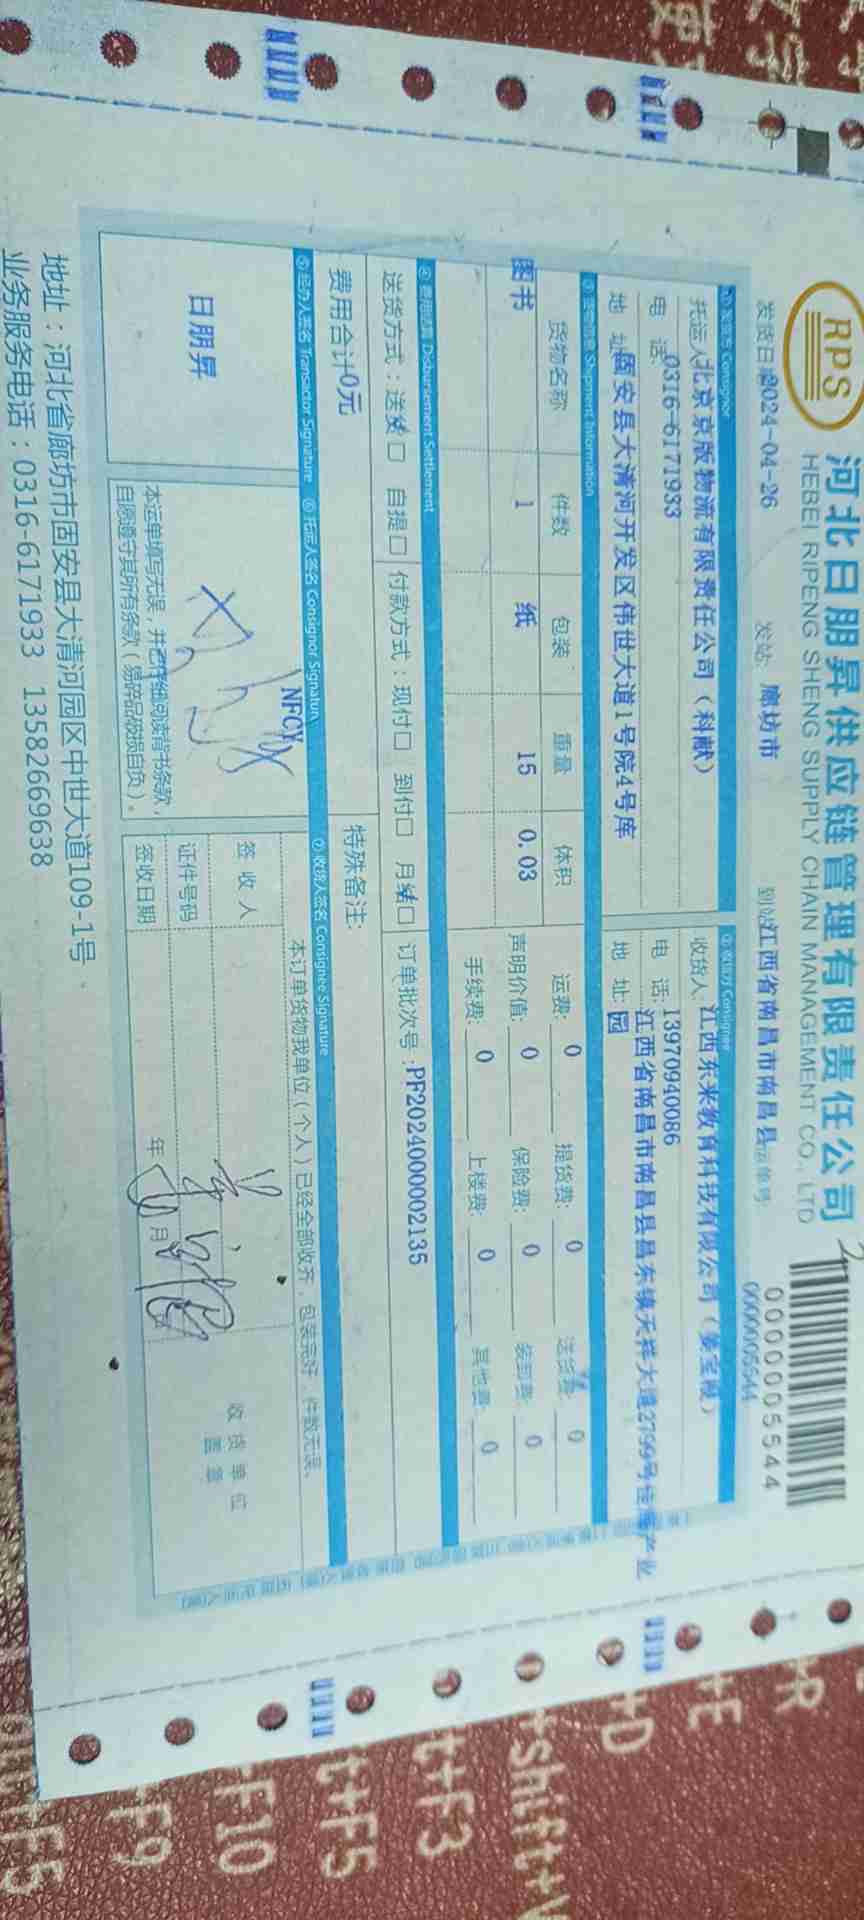 RPS
河北日朋昇供应链管理有限责任公司
HEBEI RIPENG SHENG SUPPLY CHAIN MANAGEMENT CO., LTD
0000005544
发货日期2024-04-26 发站: 廊坊市 到站江西省南昌市南昌县运单号: 0000005544
① 发货方 Consignor
托运人北京京版物流有限责任公司（科献）
电 话:0316-6171933
地 址:固安县大清河开发区伟世大道1号院4号库
② 收货方 Consignee
收货人:江西东来教育科技有限公司
电 话:13970940086
地 址:江西省南昌市南昌县昌东镇天祥大道2799号佳海产业园
③ 货物信息 Shipment Information
货物名称 件数 包装 重量 体积
图书 1 纸 15 0.03
运费: 0 提货费: 0 送货费: 0
声明价值: 0 保险费: 0 装卸费: 0
手续费: 0 上楼费: 0 其他费: 0
④ 费用结算 Disbursement Settlement
送货方式：送货□ 自提□ 付款方式：现付□ 到付□ 月结□ 订单批次号:PF2024000002135
费用合计0元
特殊备注:
⑤ 经办人签名 Transactor Signature ⑥ 托运人签名 Consignor Signature ⑦ 收货人签名 Consignee Signature
日朋昇
NFCY
本运单填写无误，并已仔细阅读背书条款，
自愿遵守其所有条款（易碎品破损自负）。
本订单货物我单位（个人）已经全部收齐，包装完好，件数无误。
签 收 人
证件号码
签收日期 年 月
收 货 单 位
盖 章
地址：河北省廊坊市固安县大清河园区中世大道109-1号
业务服务电话：0316-6171933 13582669638
+R
+E
+D
+shift+V
t+F3
t+F5
+F10
+F9